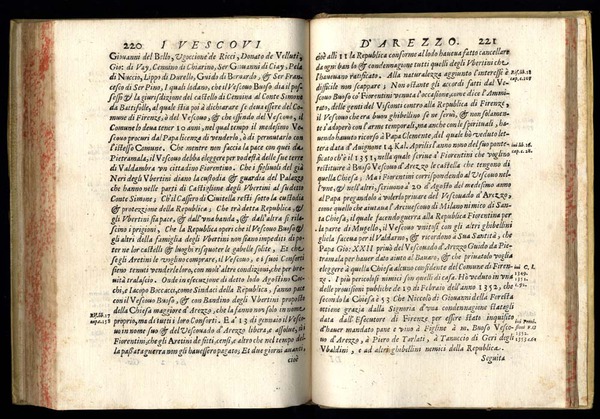 220 I VESCOVI
Giovanni del Bello, Uguccione de Ricci, Donato de Velluti,
Gio: di Vay, Cennino di Chiarino, Ser Giovanni di Ciay, Pela
di Nuccio, Lippo di Durello, Guido di Bernardo, & Ser Fran-
cesco di Ser Pino, l quali lodano, che il Vescovo Buoso dia il pos-
sessò & la giurisdizione del castello di Cennina al Conte Simone
da Battifolle, al quale stia poi à dichiarare se deva essere del Co-
mune di Firenze, ò del Vescovo, & che essendo del Vescovo, il
Comune lo deva tener 10 anni, nel qual tempo il medesimo Ve-
scovo procuri dal Papa licenza di venderlo, ò di permutarlo con
l'istesso Comune. Che mentre non faccia la pace con quei da
Pietramala, il Vescovo debba eleggere per podestà delle sue terre
di Valdambra un cittadino Fiorentino. Che i figliuoli del già
Neri degli Vbertini diano la custodia & guardia del Palazzo
che hanno nelle parti di Castiglione degli Vbertini al sudetto
Conte Simone; Ch'il Cassero di Civitella resti sotto la custodia
& protezzione della Republica; Che trà detta Republica, &
gli Vbertini sia pace, & dall'una banda, & dall'altra si rila-
scino i prigioni, Che la Republica operi che il Vescovo Buoso &
gli altri della famiglia degli Vbertini non siano impediti di po-
ter ne lor castelli & luoghi riscuotere le gabelle solite, Et che
segli Aretini le voglino comprare, il Vescovo, et i suoi Consorti
sieno tenuti venderle loro, con molt'altre condizioni, che per bre-
vità tralascio. Onde in esecuzione di detto lodo Agostino Coc-
chi, e Iacopo Bracco, come Sindaci della Republica, fanno pace
con il Vescovo Buoso, & con Bandino degli Vbertini proposto
della Chiesa maggiore d'Arezzo, che la fanno non solo in nome
proprio, ma di tutti i loro Consorti. Et à 13 di gennaio il Vesco-
vo in nome suo & del Vescovado d'Arezzo libera, e assolue, si i
Fiorentini, che gli Aretini de fitti, censi, e altro che nel tempo del-
la passata guerra non gli havessero pagato; Et due giorni avanti,
cioè
D'AREZZO. 221
cioè alli 11 la Republica conforme al lodo haveva fatto cancellare
da ogni bando & condennagione tutti quelli degli Vbertini che
l'havevano ratificato. Alla naturalezza aggiunto l'interesse è
difficile non scappare; Non ostante gli accordi fatti dal Vescovo
Buoso co' Fiorentini venuta l'occasione, come dice l'Ammi-
rato, delle genti del Visconti contro alla Republica di Firenze,
il Vescovo che era buon ghibellino se ne servì, & non solamen-
te s'adoperò con l'armi temporali, ma anche con le spirituali, ha-
vendo hauuto ricorso à Papa Clemente, del quale hò veduto let-
tera data d'Auignone 14 Kal. Aprilis l'anno nono del suo ponte-
ficato ch'è il 1351, nella quale scrive a' Fiorentini che voglino
restituire à Buoso Vescovo d'Arezzo le castella che tengono di
quella Chiesa; Mà i Fiorentini corrispondendo al Vescouo nel-
l'une, & nell'altre, scrissono à 20 d'Agosto del medesimo anno
al Papa pregandolo à volerlo privare del Vescovado d'Arezzo,
come quello che aiutaua l'Arcivescovo di Milano nemico di San-
ta Chiesa, il quale facendo guerra alla Republica Fiorentina per
la parte di Mugello, il Vescovo unitosi con gli altri ghibellini
gliela faceua per il Valdarno, & ricordono à Sua Santità, che
Papa Gio: XXII privò del Vescouado d'Arezzo Guido da Pie-
tramala per hauer dato aiuto al Bavaro, & che privatolo voglia
eleggere à quella Chiesa alcuno confidente del Comune di Firen-
ze. I più pericolosi nimici son quelli di casa. Hò veduto in una
delle provisioni publiche de 19 di Febraio dell'anno 1352, che
secondo la Chiesa è 53 Che Niccolò di Giovanni della Foresta
ottiene grazia dalla Signoria d'una condennagione statagli
data dall'Esecutore di Firenze per essere stato inquisito
d'hauer mandato pane e vino à Figline à m. Buoso Vesco-
vo d'Arezzo, à Piero de Tarlati, à Tanuccio di Geri degli
Vbaldini, e ad altri ghibellini nemici della Republica.
Seguita